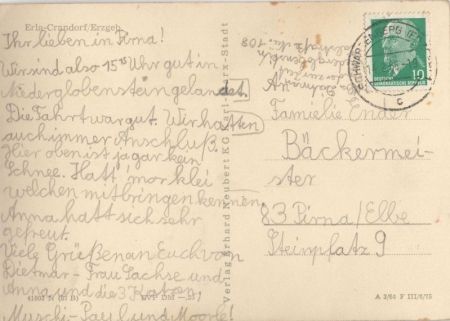 Erla-Crandorf/Erzgeb.
Ihr lieben in Pirna!
Wir sind also 15⁰⁰ Uhr gut in
Niederglobenstein gelandet.
Die Fahrt war gut. Wir hatten
auch immer Anschluß.
Hier oben ist ja gar kein
Schnee. Hatt' mor klei
welchen mitbringen kennen.
Anna hat sich sehr
gefreut.
Viele Grüße an Euch von
Dietmar - Frau Sachse und
Anna und die 3 Katzen,
Muschi - Paul und Moorle!
Verlag Erhard Neubert KG, Karl-Marx-Stadt
DEUTSCHE
DEMOKRATISCHE REPUBLIK
10
c
An
Familie Ender
Bäckermei-
ster
83 Pirna/Elbe
Steinplatz 9
A 3/64 F III/6/15